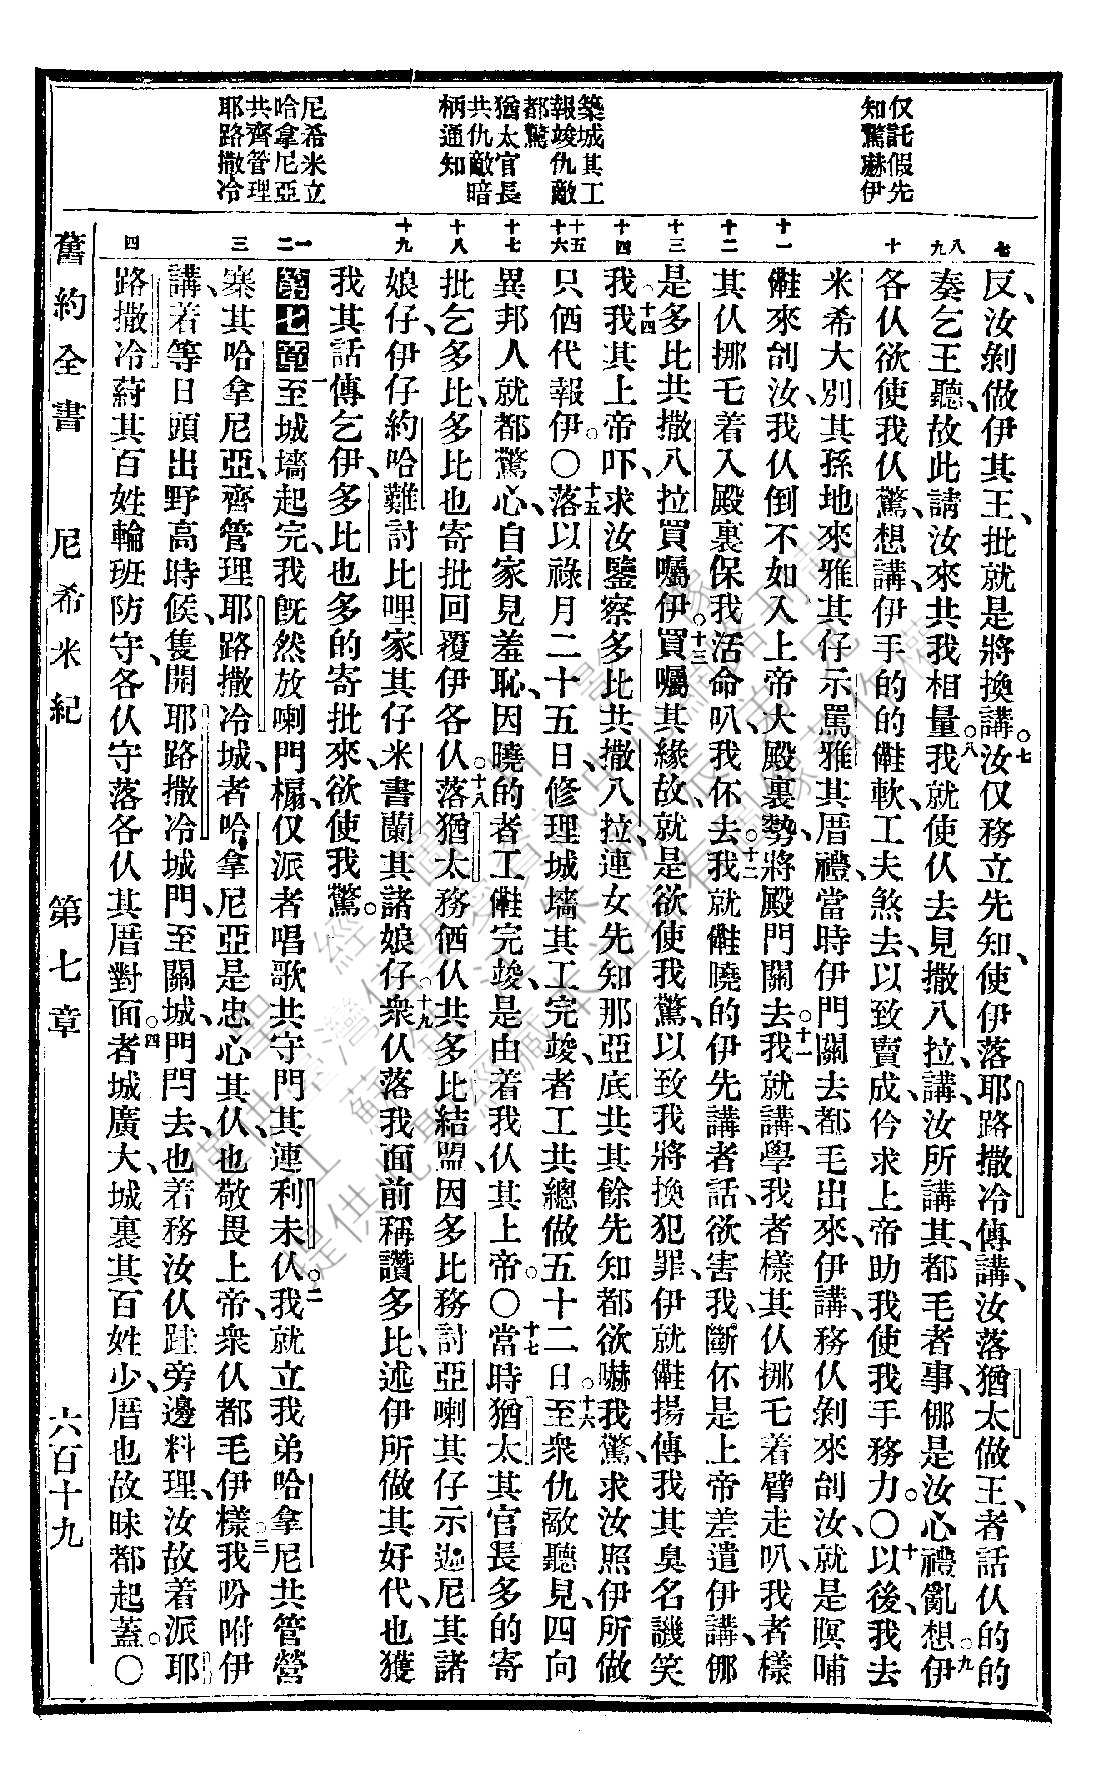 仅託假先
知驚嚇伊
築城其工
報竣仇敵
都驚
猶太官長
共仇敵暗
柄通知
尼希米立
哈拿尼亞
共齊管理
耶路撒冷
七
八
九
十
十一
十二
十三
十四
十五
十六
十七
十八
十九
一
二
三
四
反、汝剝做伊其王、批就是將換講。七汝仅務立先知、使伊落耶路撒冷傳講、汝落猶太做王、者話仈的的
奏乞王聽、故此請汝來共我相量。八我就使仈去見撒八拉、講、汝所講其、都毛者事、㑚是汝心禮亂想。九伊
各仈欲使我仈驚、想講、伊手的的𣍐軟、工夫煞去、以致賣成、仱求上帝助我、使我手務力。〇十以後我去
米希大別其孫、地來雅其仔、示罵雅其厝禮、當時伊門關去、都毛出來、伊講、務仈剝來刣汝、就是暝晡
𣍐來刣汝、我仈倒不如入上帝大殿裏、勢將殿門關去。十一我就講、學我者樣其仈、挪乇着臂走叭、我者樣
其仈、挪乇着入殿裏保我活命叭、我伓去。十二我就𣍐曉的伊先講者話、欲害我、斷伓是上帝差遣伊講、㑚
是多比共撒八拉買囑伊。十三買囑其緣故、就是欲使我驚、以致我將換犯罪、伊就𣍐揚傳我其臭名譏笑
我。十四我其上帝吓、求汝鑒察多比共撒八拉、連女先知那亞底、共其餘先知、都欲嚇我驚、求汝照伊所做
只倆代報伊。〇十五落以祿月二十五日、修理城墻其工完竣、者工共總做五十二日。十六至衆仇敵聽見、四向
異邦人就都驚心、自家見羞恥、因曉的者工𣍐完竣、是由着我仈其上帝。〇十七當時猶太其官長多的寄
批乞多比、多比也寄批回覆伊各仈。十八落猶太務倆仈共多比結盟、因多比務討亞喇其仔示迦尼其諸
娘仔、伊仔約哈難討比哩家其仔米書蘭其諸娘仔。十九衆仈落我面前稱讚多比、述伊所做其好代、也獲
我其話傳乞伊、多比也多的寄批來、欲使我驚。
第七章一至城墻起完、我旣然放喇門榻、仅派者唱歌共守門其、連利未仈。二我就立我弟哈拿尼、共管營
寨其哈拿尼亞、齊管理耶路撒冷城、者哈拿尼亞是忠心其仈、也敬畏上帝、衆仈都毛伊樣。三我吩咐伊
講、若等日頭出野高時候、隻開耶路撒冷城門、至關城門、門閂去、也若務汝仈跬旁邊料理、汝故着派耶
路撒冷蔚其百姓輪班防守、各仈守落各仈其厝對面。四者城廣大、城裏其百姓少、厝也故昧都起蓋。〇
舊約全書 尼希米紀 第七章 六百十九